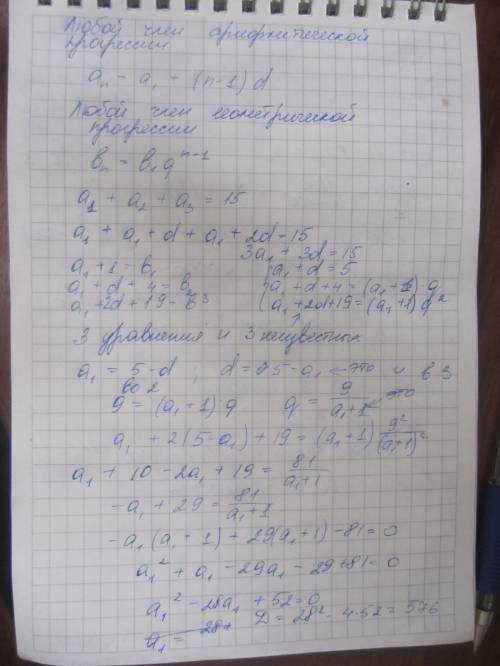 Любой член арифметической
прогрессии
aₙ = a₁ + (n-1)d
Любой член геометрической
прогрессии
bₙ = b₁qⁿ⁻¹
a₁ + a₂ + a₃ = 15
a₁ + a₁ + d + a₁ + 2d = 15
3a₁ + 3d = 15
a₁ + 1 = b₁ { a₁ + d = 5
a₁ + d + 4 = b₂ { a₁ + d + 4 = (a₁ + 1) q
a₁ + 2d + 19 = b₃ { a₁ + 2d + 19 = (a₁ + 1) q²
3 уравнения и 3 неизвестных
a₁ = 5 - d ; d = 5 - a₁ ← это и в 3
во 2
9 = (a₁ + 1) q q = 9/(a₁ + 1) ← это
a₁ + 2(5 - a₁) + 19 = (a₁ + 1) 9²/(a₁ + 1)²
a₁ + 10 - 2a₁ + 19 = 81/(a₁ + 1)
-a₁ + 29 = 81/(a₁ + 1)
-a₁(a₁ + 1) + 29(a₁ + 1) - 81 = 0
a₁² + a₁ - 29a₁ - 29 + 81 = 0
a₁² - 28a₁ + 52 = 0
a₁ = 28+ D = 28² - 4·52 = 576